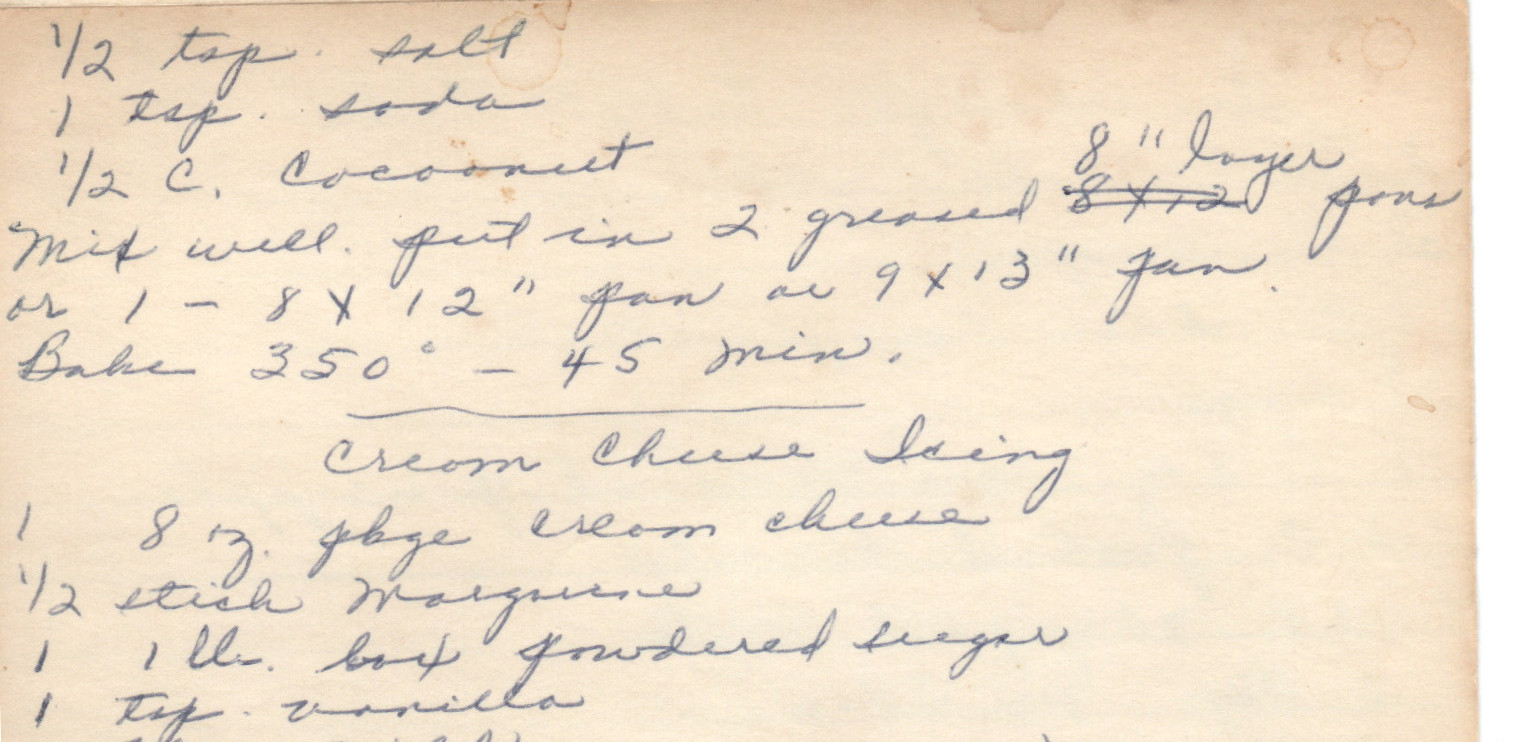 1/2 tsp. salt
1 tsp. soda
1/2 C. Cocoanut
8" layer
Mix well. put in 2 greased 8X12 pans
or 1 - 8 X 12" pan or 9 x 13" pan.
Bake 350° - 45 min.
Cream Cheese Icing
1 8 oz. pkge cream cheese
1/2 stick Margarine
1 1 lb. box powdered sugar
1 tsp. vanilla